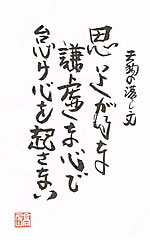 天狗の落し文
思い上がらず
謙虚な心で
怠け心を起さない